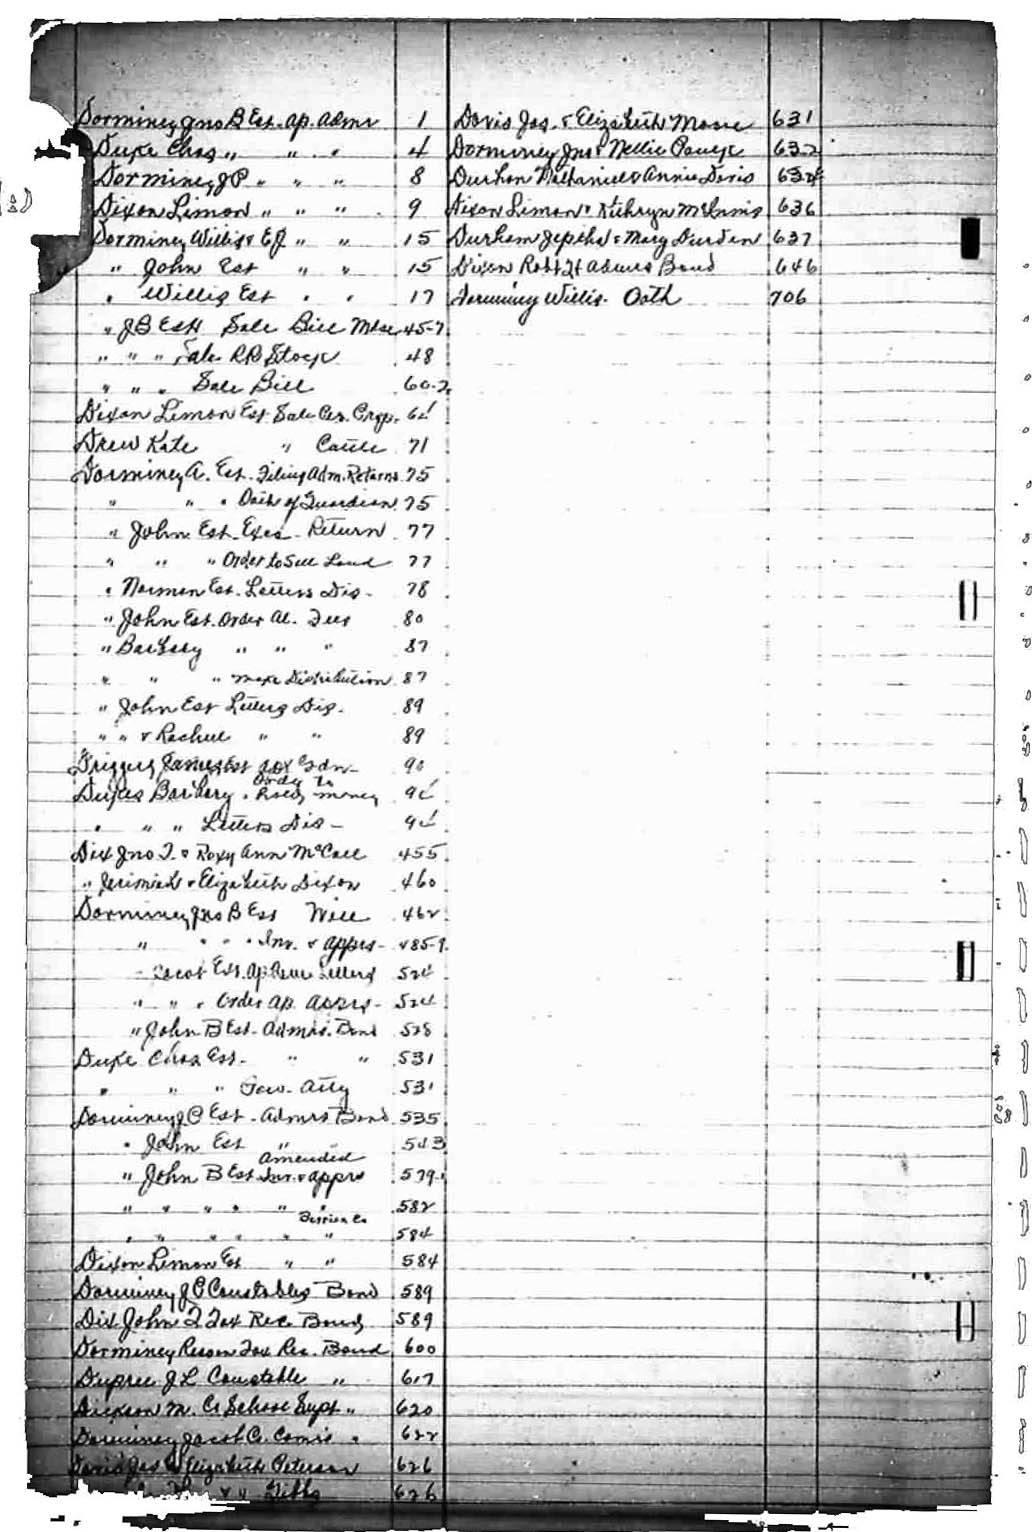 Dorminey Jno B Est. Ap. Admr 1
Duke Chas " " " 4
Dorminey J P " " " 8
Dixon Limon " " " 9
Dorminey Willis & E J " " 15
" John Est " " 15
" Willis Est " " 17
" J B Est Sale Bill Mdse 45-7
" " " Sale R R Stock 48
" " " Sale Bill 60-2
Dixon Limon Est Sale Per. Prop. 64
Drew Kate " Cattle 71
Dorminey A. Est. Filing Adm. Returns 75
" " " Oath of Guardian 75
" John Est. Exrs. Return 77
" " " Order to Sell Land 77
" Norman Est. Letters Dis- 78
" John Est. Order Al. 80
" Barbary " " " 87
" " " make Distribution 87
" John Est Letters Dis. 89
" " & Rachel " " 89
Driggers James Est Gdn- 90
Dukes Barbary " Order To money
" " " Letters Dis-
Dix Jno T. & Roxy Ann McCall 455
" Jerimiah & Elizabeth Dixon 460
Dorminey Jno B Est Will 462
" " " " Inv. & apprs- 485-9
" Jacob Est. Ap. Letters 524
" " " Order ap. apprs- 524
" John B Est- Admrs. Bond 528
Duke Chas Est- " " 531
" " " Pow. Atty 531
Dorminey J P Est- Admrs Bond 535
" John Est " 543
" John B Est amended Inv. & apprs 579-
" " " " " " 582
" " " " " " 584
Dixon Limon Est " " 584
Dorminey J P Constables Bond 589
Dix John T Tax Rec Bond 589
Dorminey Reason Tax Rec. Bond 600
Dupree J L Constable " 617
Dickson M. Co School Supt " 620
Dorminey Jacob Co. Comrs " 622
Davis Jas & Elizabeth Peterson 626
" " " Gibbs 626
Davis Jas. & Elizabeth 631
Dorminey Jno & Nellie 632
Durham Nathaniel & Annie Davis 632
Dixon Limon & Kathryn McInnis 636
Durham Jeptha & Mary Durden 637
Dixon Robt H Admrs Bond 646
Dorminy Willis- Oath 706